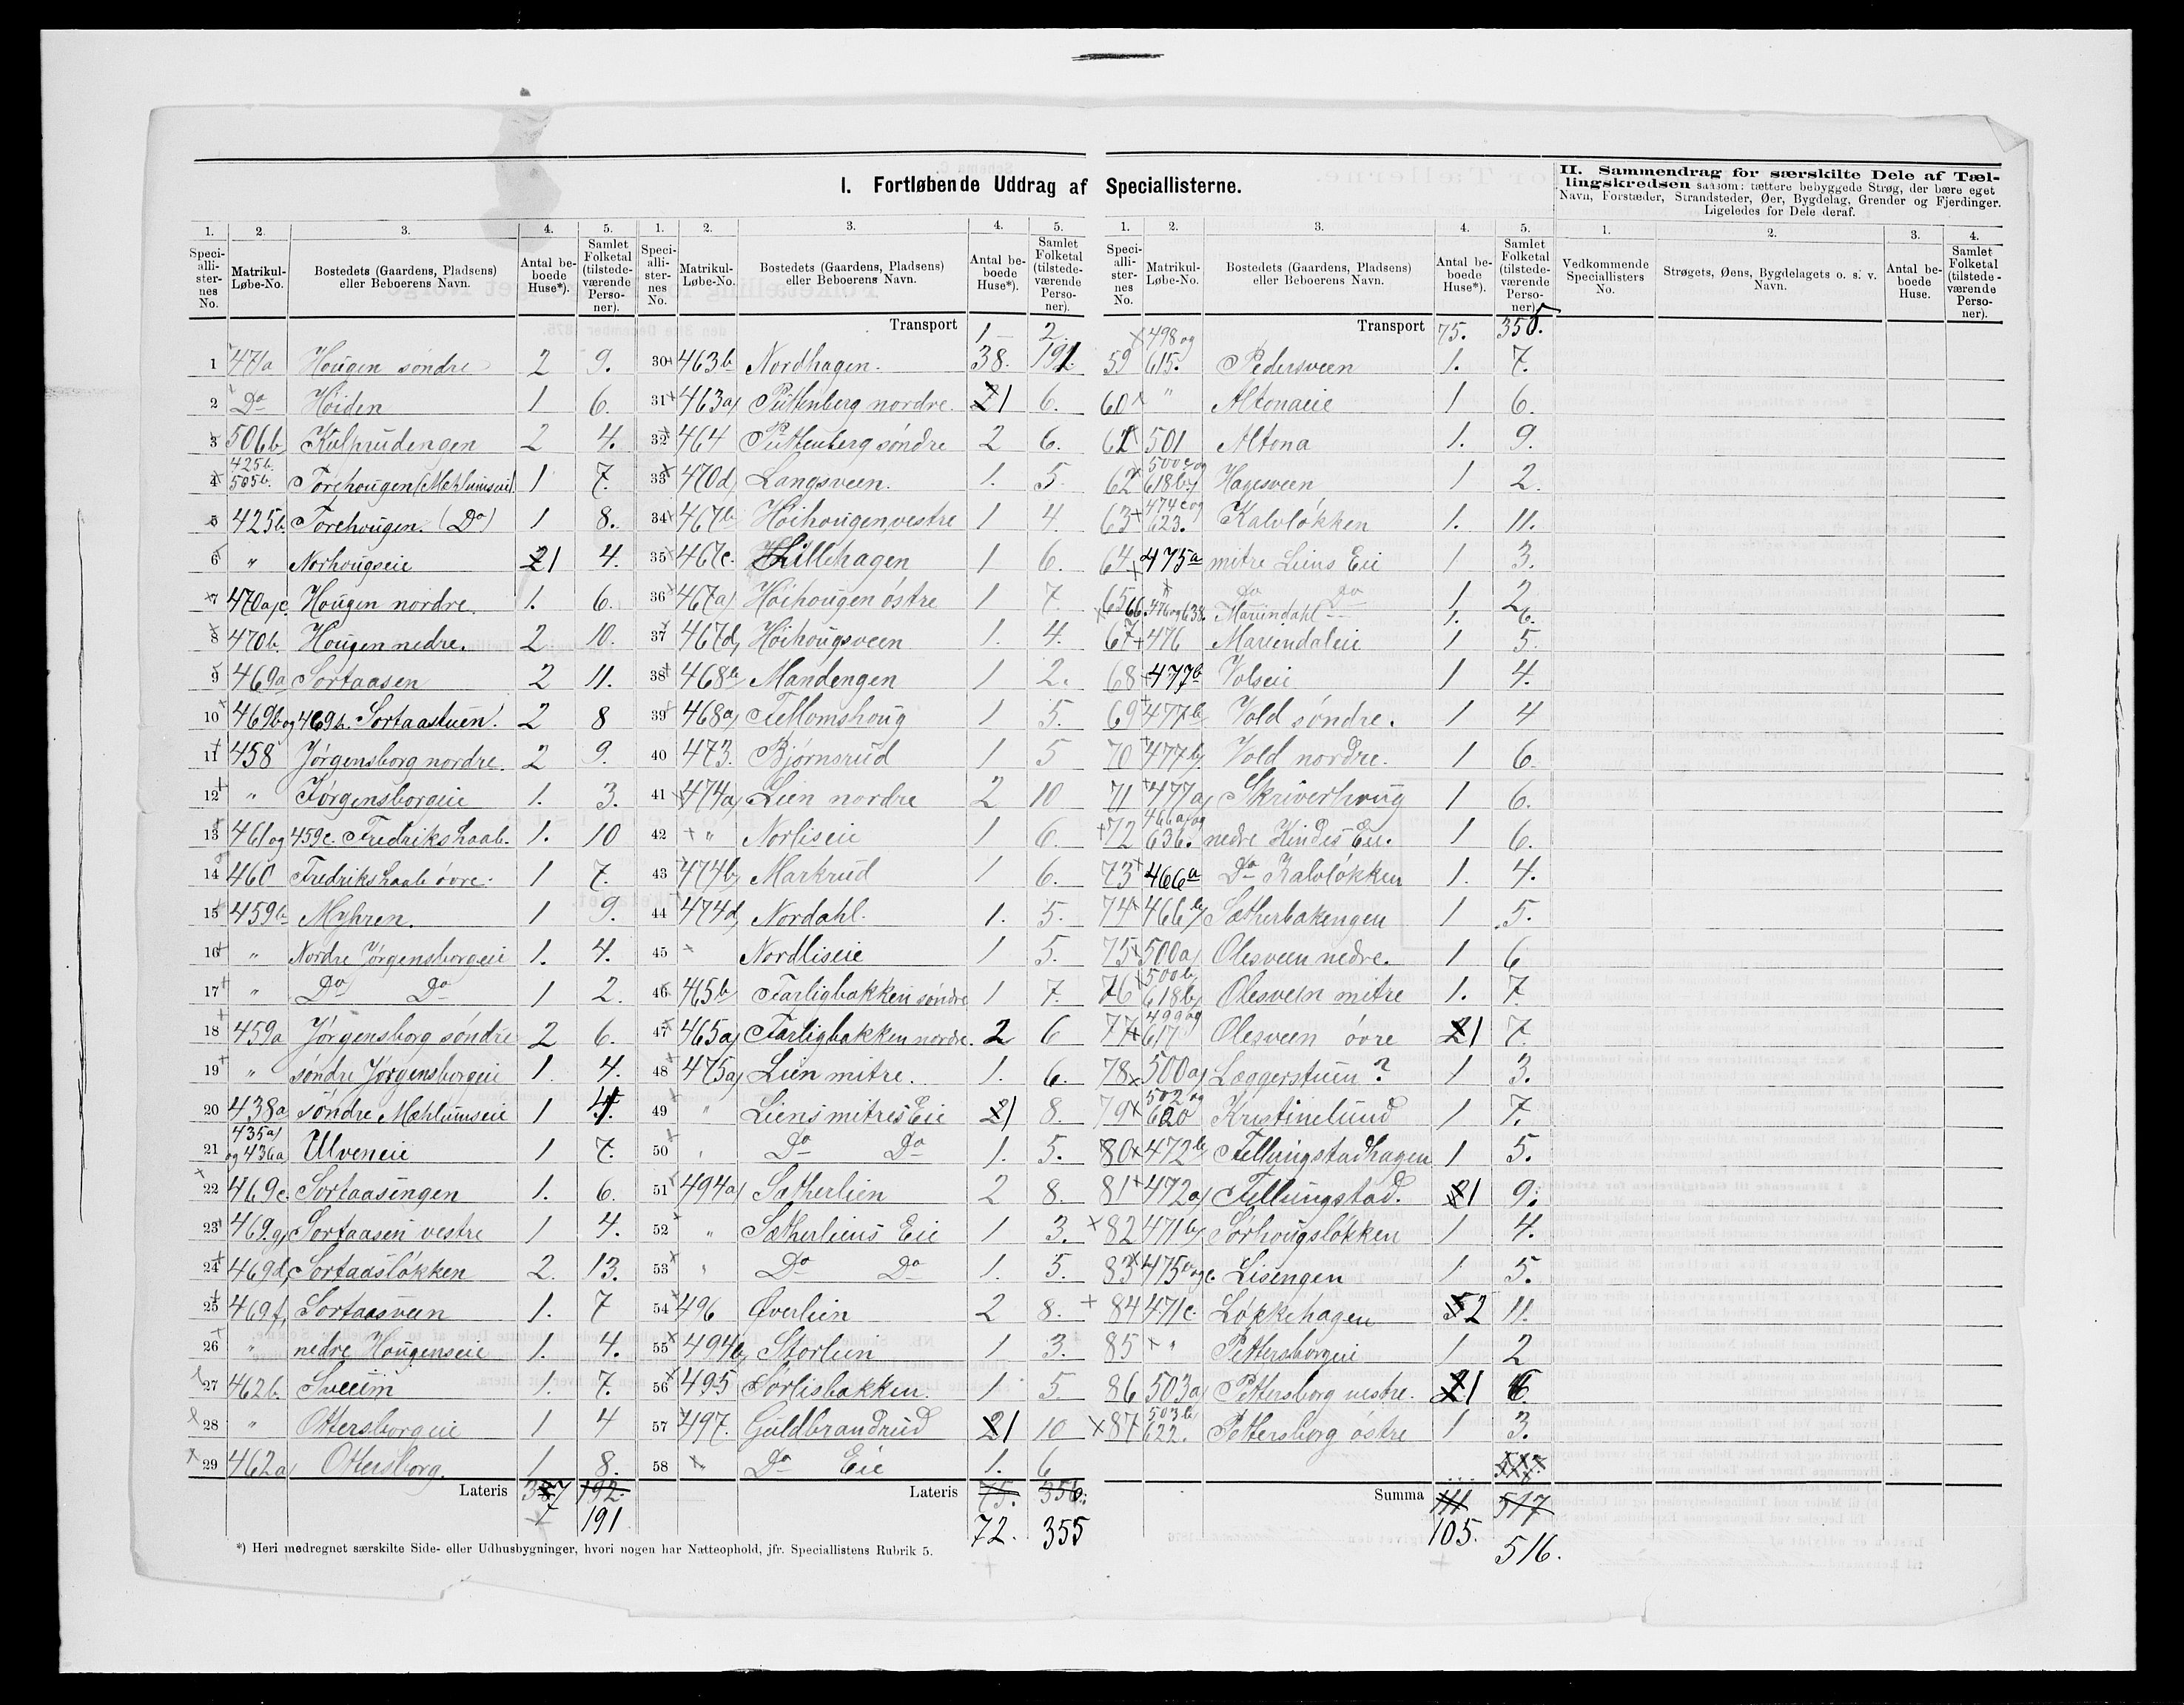 I. Fortløbende Uddrag af Speciallisterne.
II. Sammendrag for særskilte Dele af Tæl-
lingskredsen saasom: tættere bebyggede Strøg, der bære eget
Navn, Forstæder, Strandsteder, Øer, Bygdelag, Grender og Fjerdinger.
Ligeledes for Dele deraf.
1. 2. 3. 4. 5.
Speciallisternes No. Matrikul-Løbe-No. Bostedets (Gaardens, Pladsens) eller Beboerens Navn. Antal beboede Huse*). Samlet Folketal (tilstedeværende Personer).
1 471a Hougen søndre 2 9.
2 Do Høiden 1 6.
3 506b Kulprudengen 2 4.
4 425b. 505b. Torehougen (Mæhlumseie) 1 7.
5 425b. Torehougen. (Do) 1 8.
6 " Norhougseie 2 1 4.
7 470a,c. Hougen nordre. 1. 6.
8 470b. Hougen nedre. 2 10.
9 469a Sortaasen 2 11.
10 469b og 469h. Sortaastuen. 2 8
11 458 Jørgensborg nordre. 2 9.
12 " Jørgensborgeie 1. 3.
13 461 og 459c. Fredrikshaab. 1. 10
14 460 Fredrikshaab øvre. 1 7.
15 459b Myhren. 1 9.
16 " Nordre Jørgensborgeie 1. 4.
17 " Do Do 1 2.
18 459a Jørgensborg søndre 2 6.
19 " søndre Jørgensborgeie 1. 4.
20 438a søndre Mæhlumseie 1 4.
21 435a) og 436a Ulveneie 1 7.
22 469c. Sortaasengen 1. 6.
23 469g, Sortaasen vestre 1 4.
24 469d, Sortaasløkken 2. 13.
25 469f, Sortaasveen 1. 7
26 " nedre Hougenseie 1. 4.
27 462b. Sveeim 1. 7.
28 " Ottersborgeie 1 4
29 462a Ottersborg. 1 8.
Lateris 38 7 192.
191
1. 2. 3. 4. 5.
Speciallisternes No. Matrikul-Løbe-No. Bostedets (Gaardens, Pladsens) eller Beboerens Navn. Antal beboede Huse*). Samlet Folketal (tilstedeværende Personer).
Transport 38. 191
30 463b Nordhagen. 1 2.
31 463a) Püttenberg nordre. 2 1 6.
32 464 Püttenberg søndre 2 6.
33 470d, Langsveen. 1. 5
34 467b Høihougen, vestre 1 4.
35 467c. Lillehagen 1 6.
36 467a) Høihougen østre 1 7.
37 467d, Høihougsveen 1. 4.
38 468b Mandengen 1 2.
39 468a, Tellomshoug 1 5.
40 473. Bjørnsrud 1 5
41 474a) Lien nordre 2 10
42 " Norliseie 1 6.
43 474b, Markrud 1 6.
44 474d, Nordahl. 1. 5.
45 Nordliseie 1 5.
46 465b Farligbakken søndre 1 7.
47 465a) Farligbakken nordre. 2 6
48 475a) Lien mitre. 1. 6.
49 " Liens mitres Eie 2 1 8.
50 " Do Do 1. 5.
51 494a) Sætherlien 2 8.
52 " Sætherliens Eie 1 3.
53 " Do Do 1. 5.
54 496 Øverlien 2 8.
55 494b, Storlien 1 3.
56 495 Sorlisbakken. 1 5
57 497. Guldbrandrud 2 1 10
58 Do Eie 1. 6
Lateris 75. 356.
72. 355
1. 2. 3. 4. 5.
Speciallisternes No. Matrikul-Løbe-No. Bostedets (Gaardens, Pladsens) eller Beboerens Navn. Antal beboede Huse*). Samlet Folketal (tilstedeværende Personer).
Transport 75. 355.
59 498 og 615. Pedersveen 1. 7.
60 " Altonaeie 1 6.
61 501 Altona 1. 9.
62 500c og 618b, Hagesveen 1 2.
63 474c og 623. Kalvløkken 1. 11.
64 475a mitre Liens Eie 1 3.
65 " Do Do 1 2
66. 476 og 638. Mariendahl 1. 6.
67 476 Mariendaleie 1 5.
68 477b Volseie 1 4.
69 477b, Vold søndre. 1 4
70 477b, Vold nordre. 1 6.
71 477a, Skriverhoug 1 6.
72 466a, og 636. nedre Kindes Eie. 1 6.
73 466a Do Kalvløkken 1. 4.
74 466b, Sætherbakengen 1 5.
75 500a) Olesveen nedre. 1 6
76 500b, 618b, Olesveen mitre 1. 7
77 499 og 617 Olesveen øvre 2 1 7.
78 500a) Læggerstuen? 1 3.
79 502 og 620 Kristinelund 1 7.
80 472b, Fellungstadhagen 1 5.
81 472a, Fellungstad. 2 1 9.
82 471b, Sørhougsløkken 1 4.
83 475b og c. Lisengen 1 5.
84 471c. Løkkehagen 5 2 11.
85 " Pettersborgeie 1 2
86 503a) Pettersborg vestre. 2 1 6.
87 503b, 622. Pettersborg østre 1 3.
Summa 111 517
105. 516.
1. 2. 3. 4.
Vedkommende Speciallisters No. Strøgets, Øens, Bygdelagets o. s. v. Navn. Antal beboede Huse. Samlet Folketal (tilstedeværende Personer).
*) Heri medregnet særskilte Side- eller Udhusbygninger, hvori nogen har Natteophold, jfr. Speciallistens Rubrik 5.